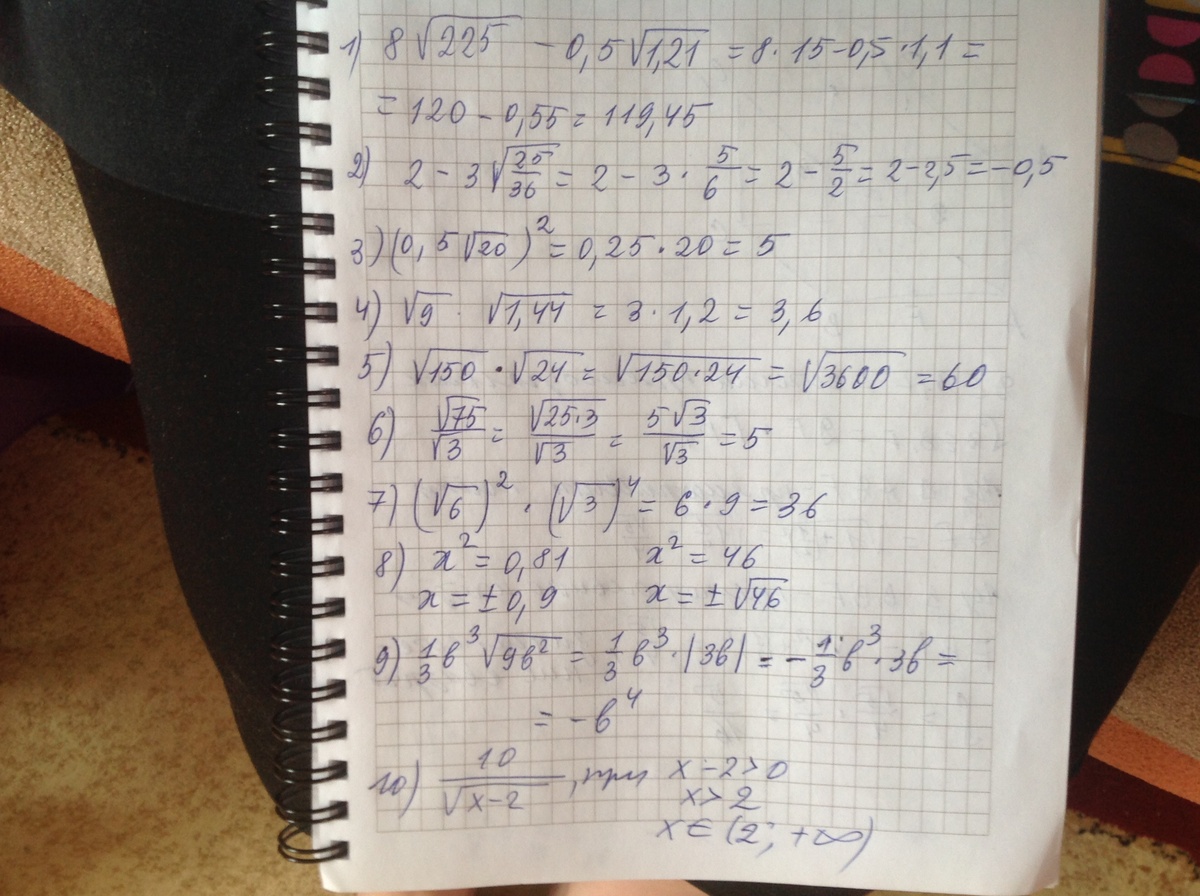 1) 8√225 - 0,5√1,21 = 8·15-0,5·1,1 =
= 120 - 0,55 = 119,45
2) 2 - 3√(25/36) = 2 - 3 · 5/6 = 2 - 5/2 = 2-2,5 = -0,5
3) (0,5√20)² = 0,25·20 = 5
4) √9 · √1,44 = 3·1,2 = 3,6
5) √150 · √24 = √(150·24) = √3600 = 60
6) √75/√3 = √(25·3)/√3 = 5√3/√3 = 5
7) (√6)² · (√3)⁴ = 6·9 = 36
8) x² = 0,81 x² = 46
x = ±0,9 x = ±√46
9) 1/3 b³ √(9b²) = 1/3 b³ · |3b| = -1/3 b³ · 3b =
= -b⁴
10) 10/√(x-2), при x-2>0
x>2
x∈(2; +∞)